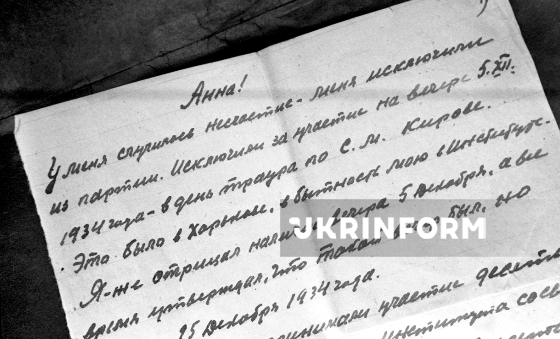 Анна!
У меня случилось несчастие - меня исключили
из партии. Исключили за участие на вечере 5.XII.
1934 года - в день траура по С. М. Кирове.
Это было в Харькове, в бытность мою в Институте.
Я-же отрицал вечера 5 декабря, а все
время утверждал, что такой был, но
25 Декабря 1934 года.
участие десяти
института
UKRINFORM